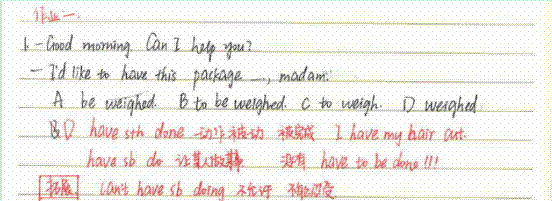 作业一.
1. -Good morning. Can I help you?
- I'd like to have this package ___, madam.
A be weighed. B to be weighed. C to weigh. D weighed
D have sth done 动作被动 被完成 I have my hair cut.
have sb do 让某人做某事 没有 have to be done!!!
拓展 can't have sb doing 不允许